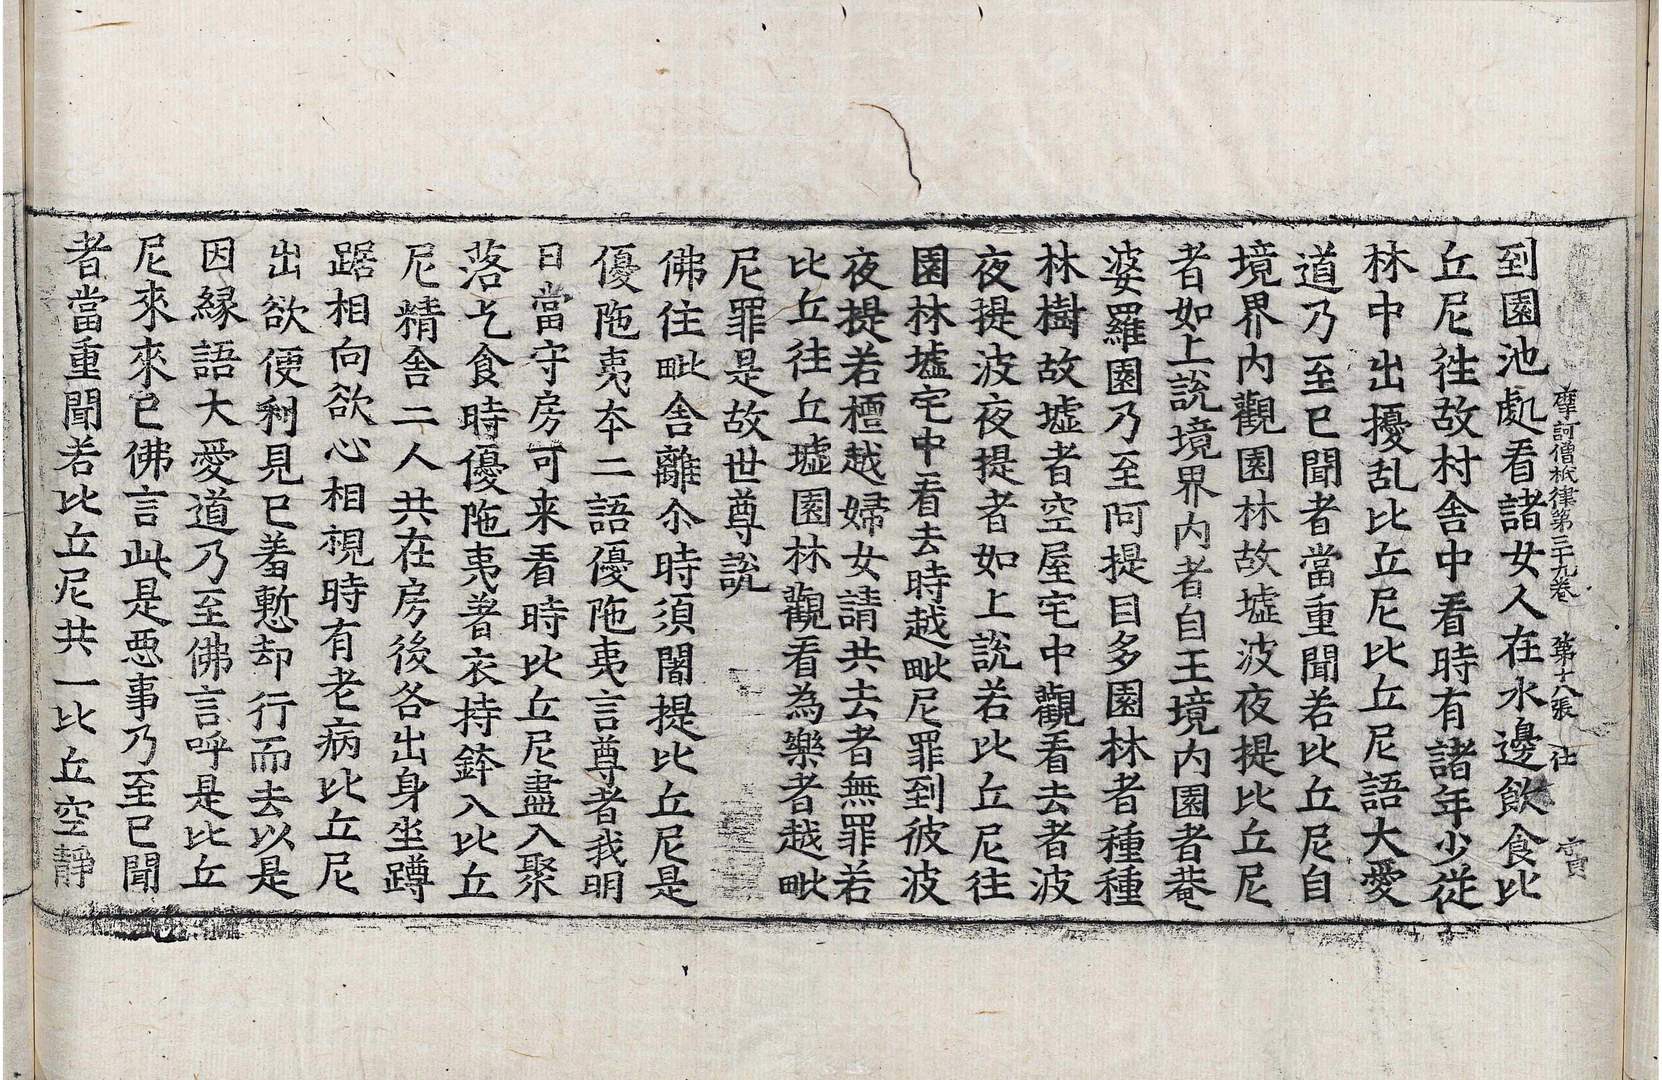 摩訶僧祇律第三十九卷 第十八張 仕
到園池處看諸女人在水邊飲食比
丘尼徃故村舎中看時有諸年少從
林中出擾乱比丘尼比丘尼語大愛
道乃至已聞者當重聞若比丘尼自
境界内觀園林故墟波夜提比丘尼
者如上說境界内者自王境内園者菴
婆羅園乃至阿提目多園林者種種
林樹故墟者空屋宅中觀看去者波
夜提波夜提者如上說若比丘尼徃
園林墟宅中看去時越毗尼罪到彼波
夜提若檀越婦女請共去者無罪若
比丘徃丘墟園林觀看為樂者越毗
尼罪是故世尊說
佛住毗舎離尒時須闍提比丘尼是
優陁夷夲二語優陁夷言尊者我明
日當守房可来看時比丘尼盡入聚
落乞食時優陁夷著衣持鉢入比丘
尼精舎二人共在房後各出身坐蹲
踞相向欲心相視時有老病比丘尼
出欲便利見已羞慙却行而去以是
因縁語大愛道乃至佛言呼是比丘
尼來來已佛言此是惡事乃至已聞
者當重聞若比丘尼共一比丘空靜